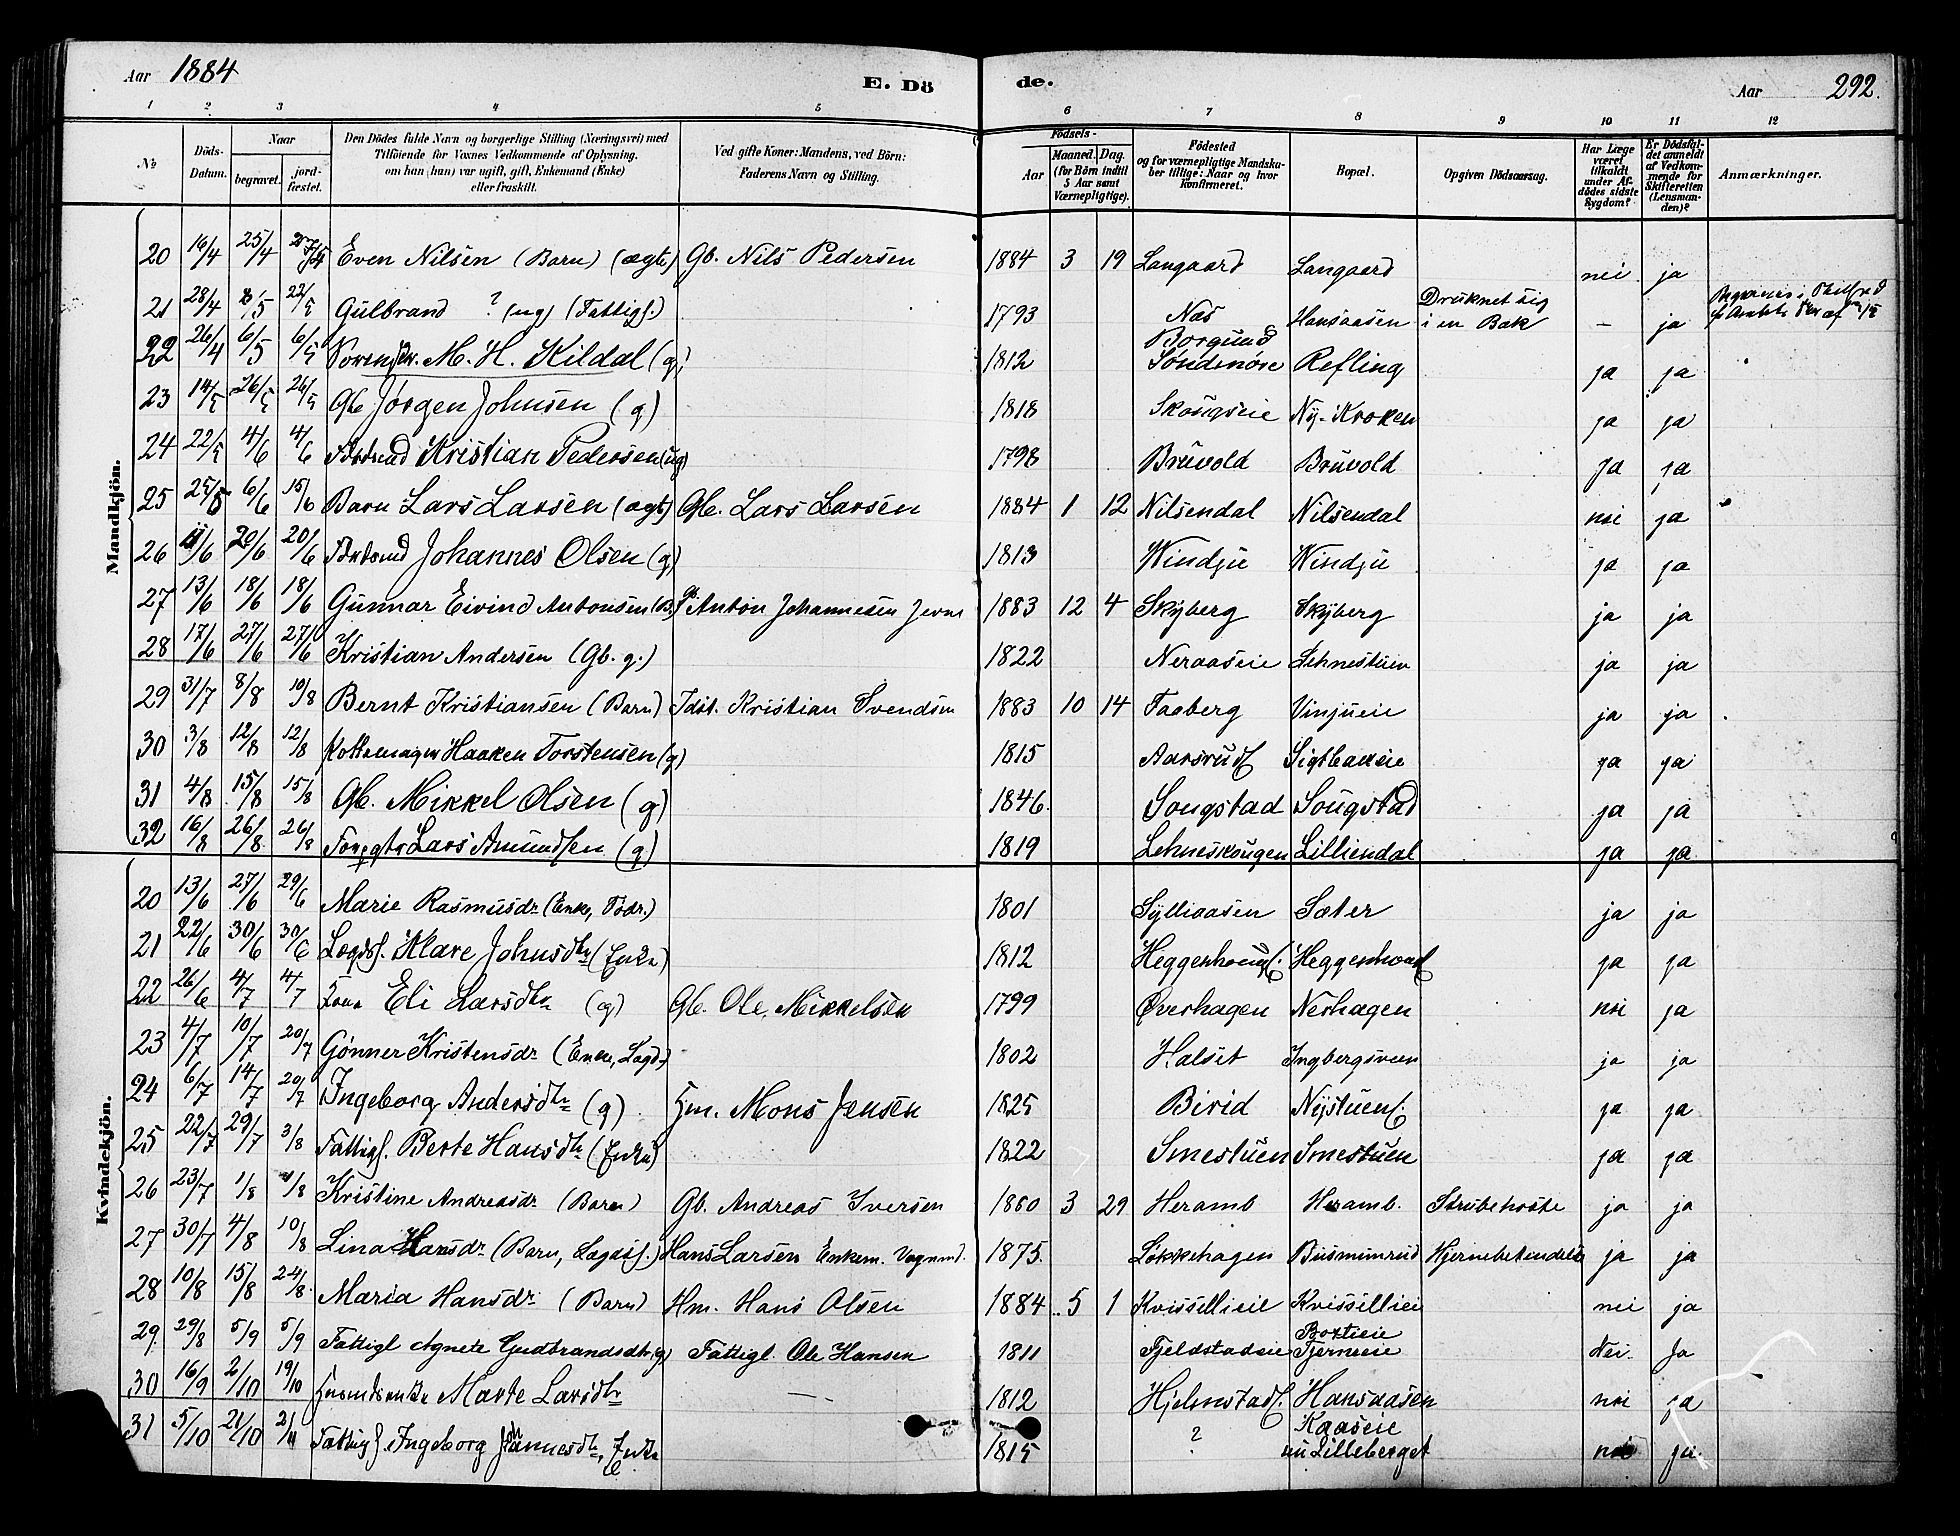 Aar 1884 E. Dö de. Aar 292.
1 2 3 4 5 6 7 8 9 10 11 12
No Döds-Datum. Naar begravet. jord-fæstet. Den Dödes fulde Navn og borgerlige Stilling (Næringsvei) med Tilföiende for Voxnes Vedkommende af Oplysning, om han (hun) var ugift, gift, Enkemand (Enke) eller fraskilt. Ved gifte Koner: Mandens, ved Börn: Faderens Navn og Stilling. Födsels- Aar Maaned. Dag. (for Börn indtil 5 Aar samt Værnepligtige). Födested og for værnepligtige Mandskaber tillige: Naar og hvor konfirmeret. Bopæl. Opgiven Dödsaarsag. Har Læge været tilkaldt under Afdödes sidste Sygdom? Er Dödsfaldet anmeldt af Vedkommende for Skifteretten (Lensmanden)? Anmærkninger.
Mandkjön.
20 16/4 25/4 Even Nilsen (Barn) (ægte) Gb. Nils Pedersen 1884 3 19 Langaard Langaard nei ja
21 28/4 22/5 Gulbrand ? (ug) (Fattigf.) 1793 Næs Hansaasen Druknet sig i en Bæk – ja
22 26/4 6/5 6/5 M. H. Kildal (g) 1812 Borgund Søndmøre Refling ja ja
23 14/5 26/5 26/5 Gbr Jørgen Johnsen (g) 1818 Skougseie Ny-Kroken ja ja
24 22/5 4/6 4/6 Kristian Pedersen (ug) 1798 Bruvold Bruvold ja ja
25 25/5 6/6 15/6 Barn Lars Larsen (ægt) Gb. Lars Larsen 1884 1 12 Nilsendal Nilsendal nei ja
26 20/6 20/6 Johannes Olsen (g) 1813 Windju Windju ja ja
27 13/6 18/6 18/6 Gunnar Eivind Antonsen (B.) Anton Johannesen 1883 12 4 Skyberg Skyberg ja ja
28 17/6 27/6 27/6 Kristian Andersen (Gb. g.) 1822 Neraaseie Lehnestuen ja ja
29 31/7 8/8 10/8 Bernt Kristiansen (Barn) Idst. Kristian Svendsen 1883 10 14 Faaberg Vinjueie ja ja
30 3/8 12/8 12/8 Haaken Torstensen (g) 1815 Aarsrud Sigstadeie ja ja
31 4/8 15/8 15/8 Gb. Mikkel Olsen (g) 1846. Sougstad Sougstad ja ja
32 16/8 26/8 26/8 Forpgtr Lars Amundsen (g) 1819 Lehneskougen Lilliendal ja ja
Kvindekjön.
20 13/6 27/6 29/6 Marie Rasmusdr. (Enke, Födr.) 1801 Sylliaasen Sæter ja ja
21 22/6 30/6 30/6 Lægdsl. Klare Johnsdtr (Enke) 1812 ja ja
22 26/6 4/7 4/7 Kone Eli Larsdtr (g) Gb. Ole Mikkelsen 1799 Øverhagen Nerhagen nei ja
23 4/7 10/7 20/7 Gønner Kristensdr. (Enke, Lægd.) 1802 Halset Ingbergsveen ja ja
24 6/7 14/7 20/7 Ingeborg Andersdtr (g) Hm. Mons Jensen 1825 Birid Nystuen ja ja
25 22/7 29/7 3/8 Fattigl. Berte Hansdtr (Enke) 1822 Smestuen Smestuen ja ja
26 23/7 1/8 Kristine Andreasdr. (Barn) Gb. Andreas Iversen 1880 3 29 Heramb Heramb. Strubehoste ja ja
27 30/7 4/8 10/8 Lina Hansdr. (Barn, Lægdsl.) Hans Larsen Enkem. 1875. Løkkehagen Busmunrud Hjernebetændelse ja ja
28 10/8 15/8 24/8 Maria Hansdr. (Barn) Hm. Hans Olsen 1884 5 1 Kvissillieie Kvissilliei nei ja
29. 29/8 5/9 5/9 Fattigl Agnete Gudbrandsdtr (g) Fattigl. Ole Hansen 1811 Fjeldstadeie Tjerneeie Nei. Ja
30 16/9 2/10 19/10 Marte Larsdtr – 1812 Hjelmstad Hansaasen nei ja
31 5/10 21/10 2/11 Fattigl. Ingeborg Johannesdtr, Enke 1815 ? Kaaseie nu Lilleberget nei ja.